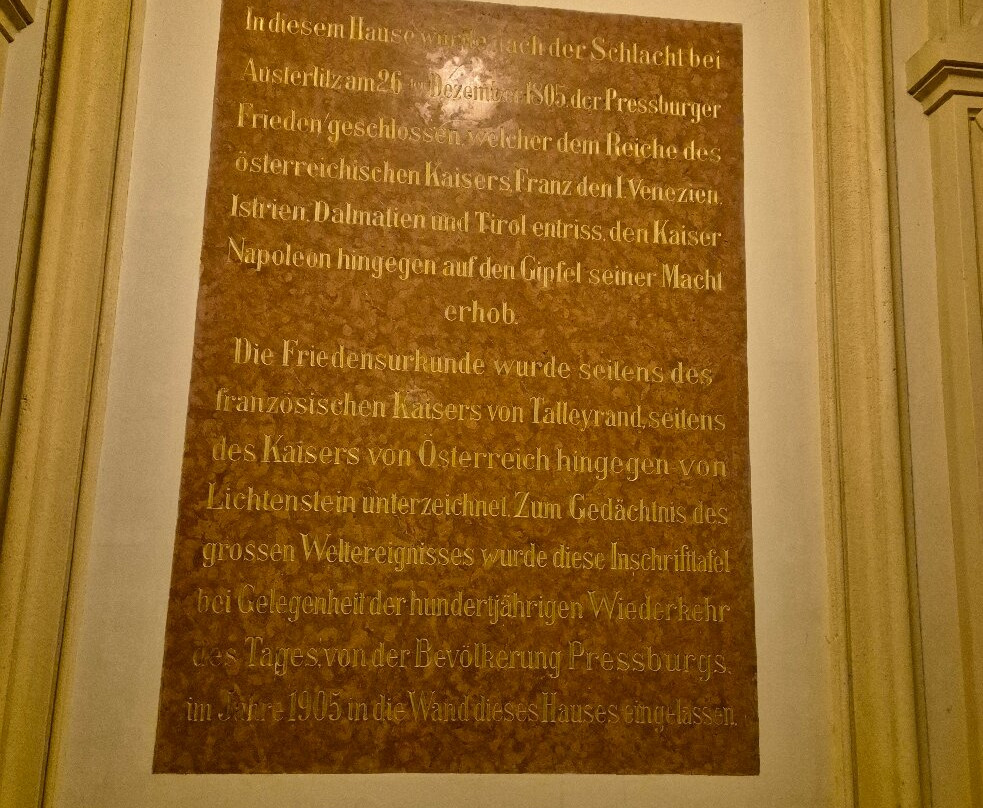 In diesem Hause wurde nach der Schlacht bei
Austerlitz am 26 ten Dezember 1805 der Pressburger
Frieden geschlossen, welcher dem Reiche des
österreichischen Kaisers, Franz den I. Venezien,
Istrien, Dalmatien und Tirol entriss, den Kaiser
Napoleon hingegen auf den Gipfel seiner Macht
erhob.
Die Friedensurkunde wurde seitens des
französischen Kaisers von Talleyrand, seitens
des Kaisers von Österreich hingegen von
Lichtenstein unterzeichnet. Zum Gedächtnis des
grossen Weltereignisses wurde diese Inschrifttafel
bei Gelegenheit der hundertjährigen Wiederkehr
des Tages, von der Bevölkerung Pressburgs,
im Jahre 1905 in die Wand dieses Hauses eingelassen.